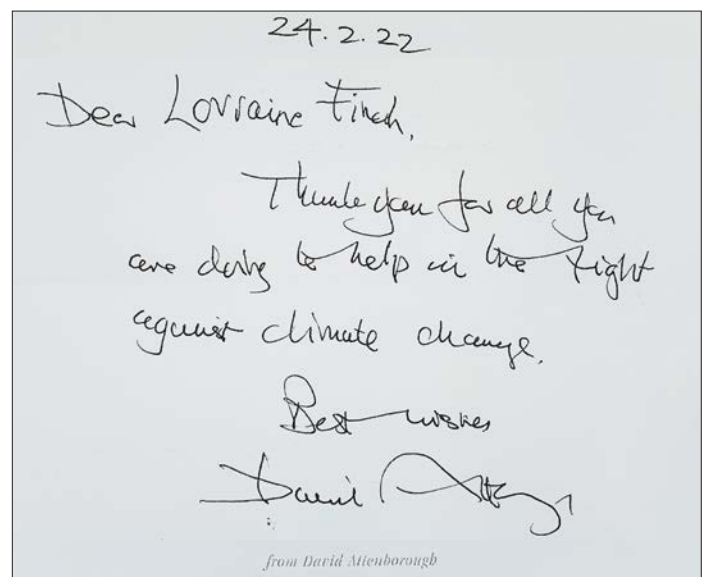 24.2.22
Dear Lorraine Finch,
Thank you for all you
are doing to help in the fight
against climate change.
Best wishes
David Attenborough
from David Attenborough